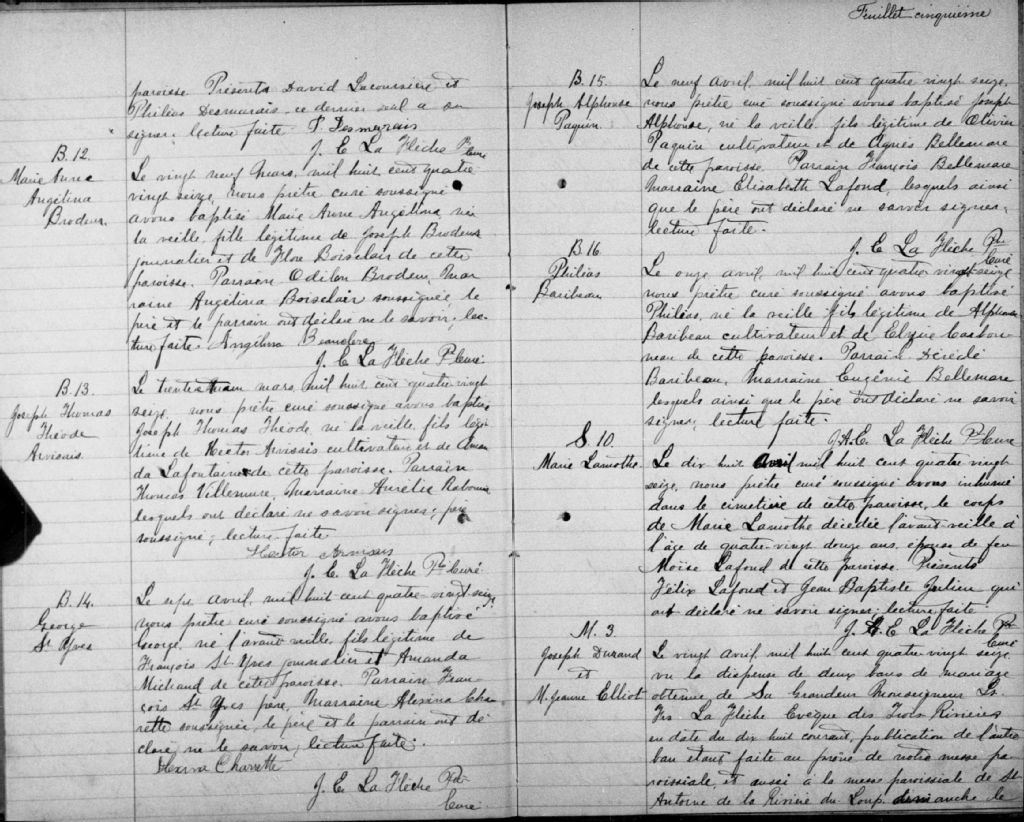 paroisse. Présents David Lacourcière et
Philias Desmarais, ce dernier seul a su
signer lecture faite P. Desmarais
J. E. La Flèche Ptre Curé
B. 12.
Marie Anne
Angélina
Brodeur.
Le vingt neuf mars, mil huit cent quatre
vingt seize, nous prêtre curé soussigné
avons baptisé Marie Anne Angélina, née
la veille, fille légitime de Joseph Brodeur
journalier et de Flore Boisclair de cette
paroisse. Parrain Odilon Brodeur, mar
raine Angélina Boisclair soussignée, le
père et le parrain ont déclaré ne le savoir, lec-
ture faite. Angilina
J. E. La Flèche Ptre Curé
B. 13.
Joseph Thomas
Théode
Arvisais
Le trente mars, mil huit cent quatre vingt
seize, nous prêtre curé soussigné avons baptisé
Joseph Thomas Théode, né la veille, fils légi
time de Hector Arvisais cultivateur et de Aman
da Lafontaine de cette paroisse. Parrain
Thomas Villemure, marraine Aurélie
lesquels ont déclaré ne savoir signer, père
soussigné; lecture faite
Hector
J. E. La Flèche Ptre Curé
B. 14.
George
St Yves
Le sept avril, mil huit cent quatre-vingt seize,
nous prêtre curé soussigné avons baptisé
George, né l'avant veille, fils légitime de
François St Yves journalier et Amanda
Michaud de cette paroisse. Parrain Fran-
çois St Yves père, marraine Alexina Cha
rette soussignée, le père et le parrain ont dé
claré ne le savoir, lecture faite.
Charrette
J. E. La Flèche Ptre
Curé
Feuillet cinquième
B. 15.
Joseph Alphonse
Paquin.
Le neuf avril, mil huit cent quatre vingt seize,
nous prêtre curé soussigné avons baptisé Joseph
Alphonse, né la veille, fils légitime de Olivier
Paquin cultivateur et de Agnès Bellemare
de cette paroisse. Parrain François Bellemare
marraine Elisabeth Lafond, lesquels ainsi
que le père ont déclaré ne savoir signer,
lecture faite.
J. E. La Flèche Ptre
Curé
B 16
Philias
Baribeau
Le onze avril, mil huit cent quatre vingt seize
nous prêtre curé soussigné avons baptisé
Philéas, né la veille fils légitime de Alphonse
Baribeau cultivateur et de Elzire Carbon
neau de cette paroisse. Parrain
Baribeau, marraine Eugénie Bellemare
lesquels ainsi que le père ont déclaré ne savoir
signer, lecture faite.
J. A. E. La Flèche Ptre Curé
S. 10.
Marie Lamothe
Le dix huit avril mil huit cent quatre vingt
seize, nous prêtre curé soussigné avons inhumé
dans le cimetière de cette paroisse, le corps
de Marie Lamothe décédée l'avant-veille à
l'âge de quatre-vingt douze ans, épouse de feu
Moïse Lafond de cette paroisse. Présents
Félix Lafond et Jean Baptiste Julien qui
ont déclaré ne savoir signer, lecture faite
J. A. E La Flèche Ptre
Curé
M. 3.
Joseph Durand
et
M. Jeanne Elliot
Le vingt avril, mil huit cent quatre vingt seize
vu la dispense de deux bans de mariage
obtenue de Sa Grandeur Monseigneur Ls
Frs La Flèche Evêque des Trois Rivières
en date du dix huit courant, publication de l'autre
ban étant faite au prône de notre messe pa
roissiale, et aussi à la messe paroissiale de St
Antoine de la Rivière du Loup. dimanche le